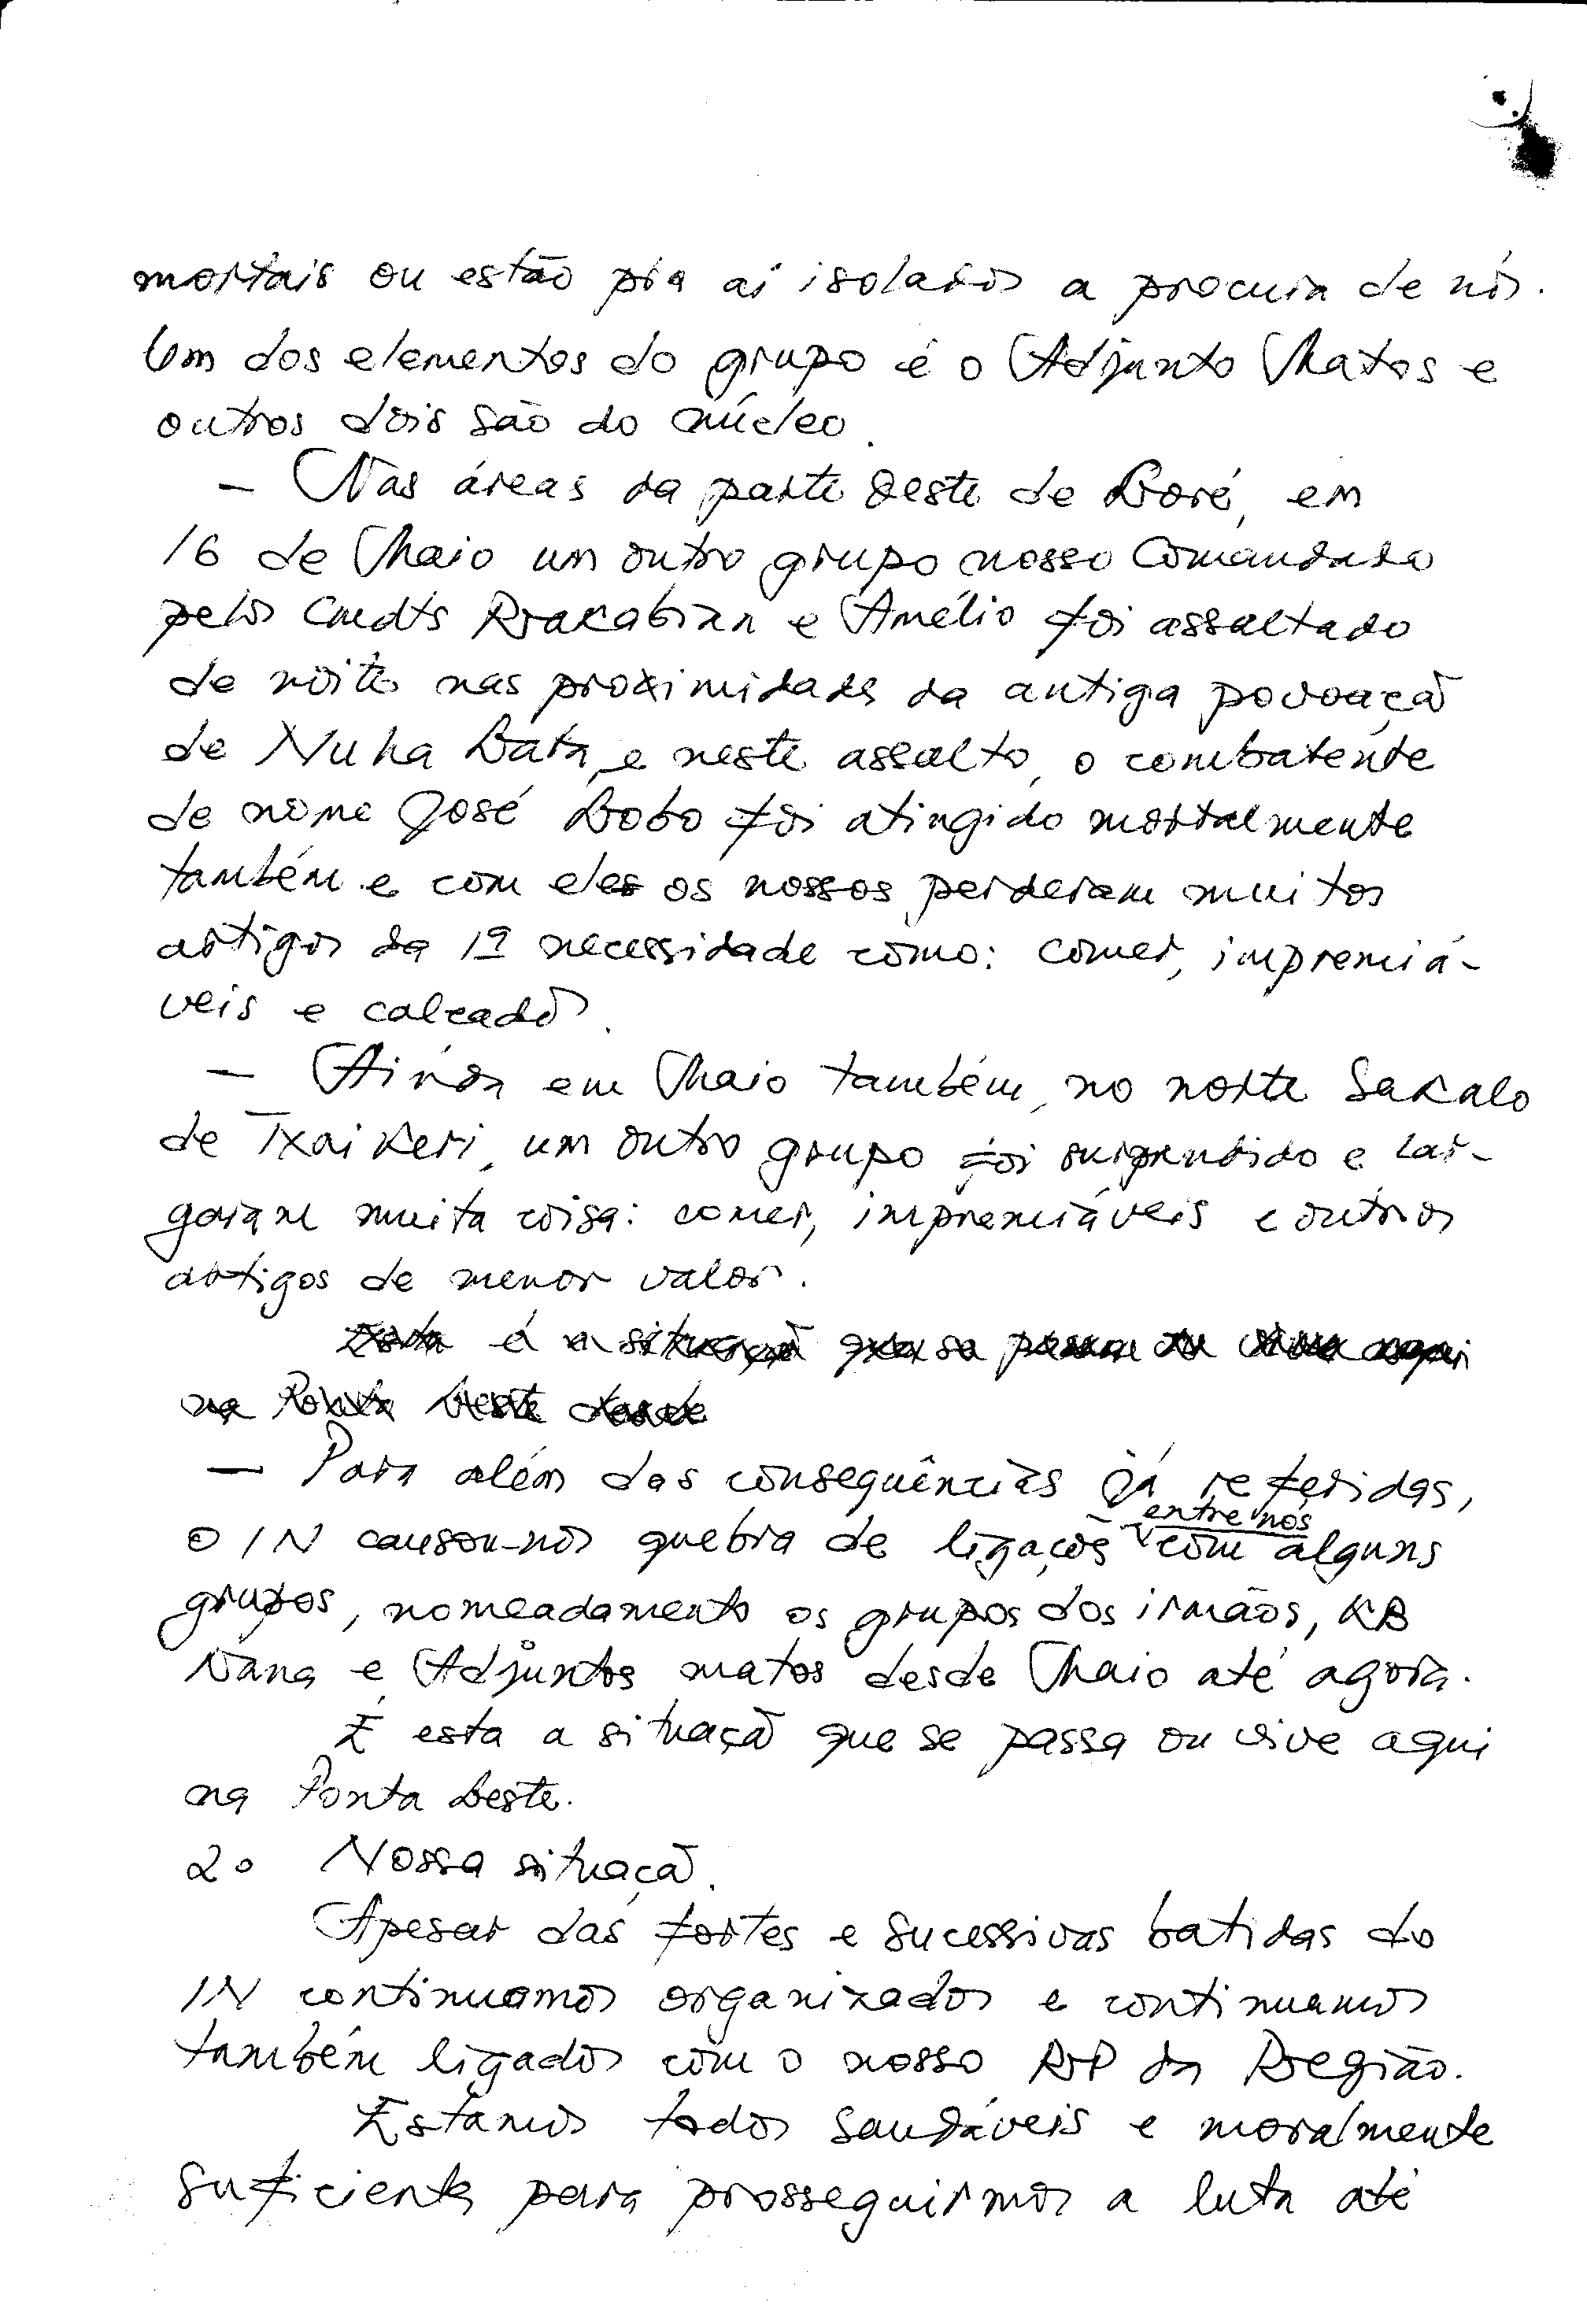 mortais ou estão p/ra aí isolados a procura de nós.
Um dos elementos do grupo é o Adjunto Matos e
outros dois são do núcleo.
– Nas áreas da parte Oeste de Loré, em
16 de Maio um outro grupo nosso comandado
pelos Cmdts Rakabian e Amélio foi assaltado
de noite nas proximidades da antiga povoaçã
de Nuha Lata, e neste assalto, o combatente
de nome José Lobo foi atingido mortalmente
também e com eles os nossos perderam muitos
artigos da 1ª necessidade como: comer, impremiá-
veis e calçados.
– Ainda em Maio também, no norte Sakalo
de Txaikeri, um outro grupo foi surprendido e lar-
garam muita coisa: comer, impremiáveis e outros
artigos de menor valor.
Esta é a situaçã que se passa ou vive aqui
na Ponta Leste desde
– Para além das consequências já referidas,
o IN causou-nos quebra de ligaçõs entre nós com alguns
grupos, nomeadamente os grupos dos irmãos, KB
Nana e Adjuntos matos desde Maio até agora.
E esta a situaçã que se passa ou vive aqui
na Ponta Leste.
2. Nossa situaçã.
Apesar das fortes e sucessivas batidas do
IN continuamos organizados e continuamos
também ligados com o nosso RP da Região.
Estamos todos saudáveis e moralmente
suficientes para prosseguirmos a luta até